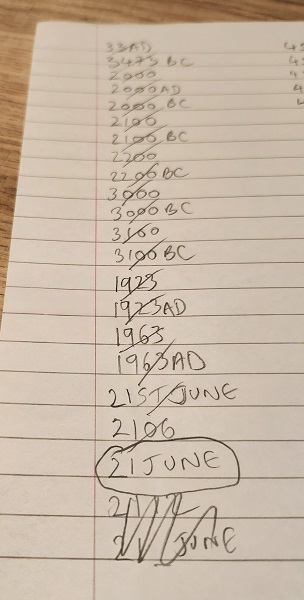 33AD
3475 BC
2000
2000AD
2000 BC
2100
2100 BC
2200
2200 BC
3000
3000 BC
3100
3100 BC
1923
1923AD
1963
1963AD
21ST JUNE
2106
21 JUNE
JUNE